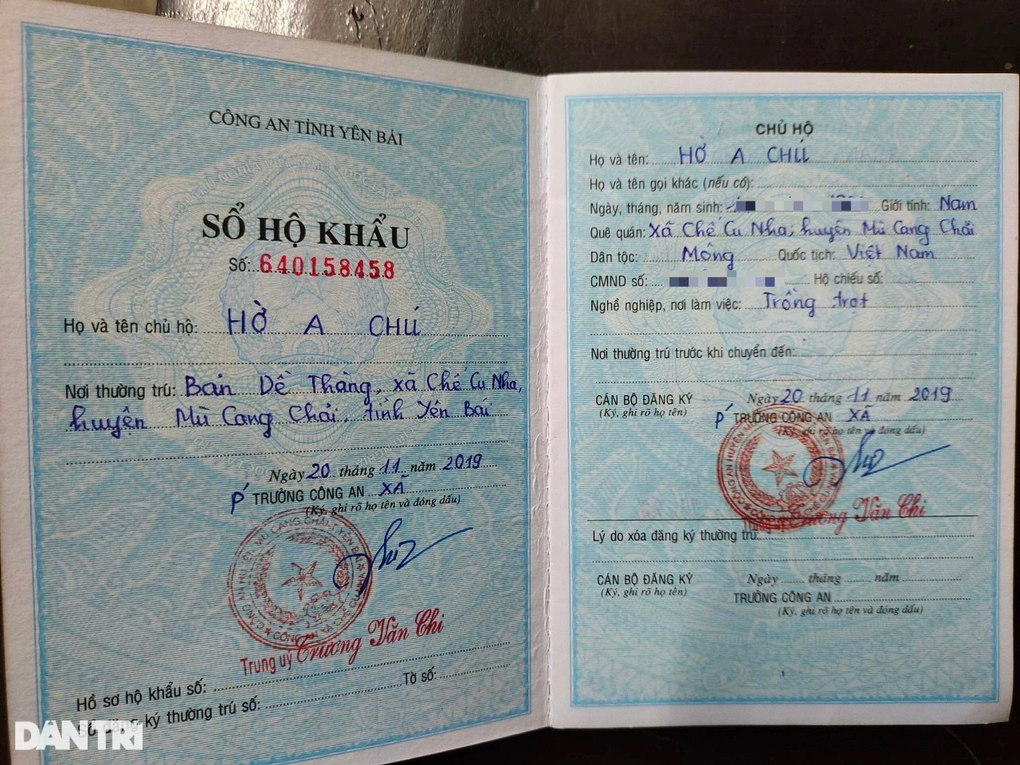 CÔNG AN TỈNH YÊN BÁI
SỔ HỘ KHẨU
Số: 640158458
Họ và tên chủ hộ: HỜ A CHÚ
Nơi thường trú: Bản Dề Thàng, xã Chế Cu Nha,
huyện Mù Cang Chải, tỉnh Yên Bái
Ngày 20 tháng 11 năm 2019
P' TRƯỞNG CÔNG AN XÃ
(Ký, ghi rõ họ tên và đóng dấu)
Trung uý Trương Văn Chi
Hồ sơ hộ khẩu số:
ký thường trú số: Tờ số:
DÂN TRÍ
CHỦ HỘ
Họ và tên: HỜ A CHÚ
Họ và tên gọi khác (nếu có):
Ngày, tháng, năm sinh: Giới tính: Nam
Quê quán: Xã Chế Cu Nha, huyện Mù Cang Chải
Dân tộc: Mông Quốc tịch: Việt Nam
CMND số: Hộ chiếu số:
Nghề nghiệp, nơi làm việc: Trồng trọt
Nơi thường trú trước khi chuyển đến:
CÁN BỘ ĐĂNG KÝ Ngày 20 tháng 11 năm 2019
(Ký, ghi rõ họ tên) P' TRƯỞNG CÔNG AN XÃ
(Ký, ghi rõ họ tên và đóng dấu)
Trương Văn Chi
Lý do xóa đăng ký thường trú:
CÁN BỘ ĐĂNG KÝ Ngày tháng năm
(Ký, ghi rõ họ tên) TRƯỞNG CÔNG AN
(Ký, ghi rõ họ tên và đóng dấu)
1